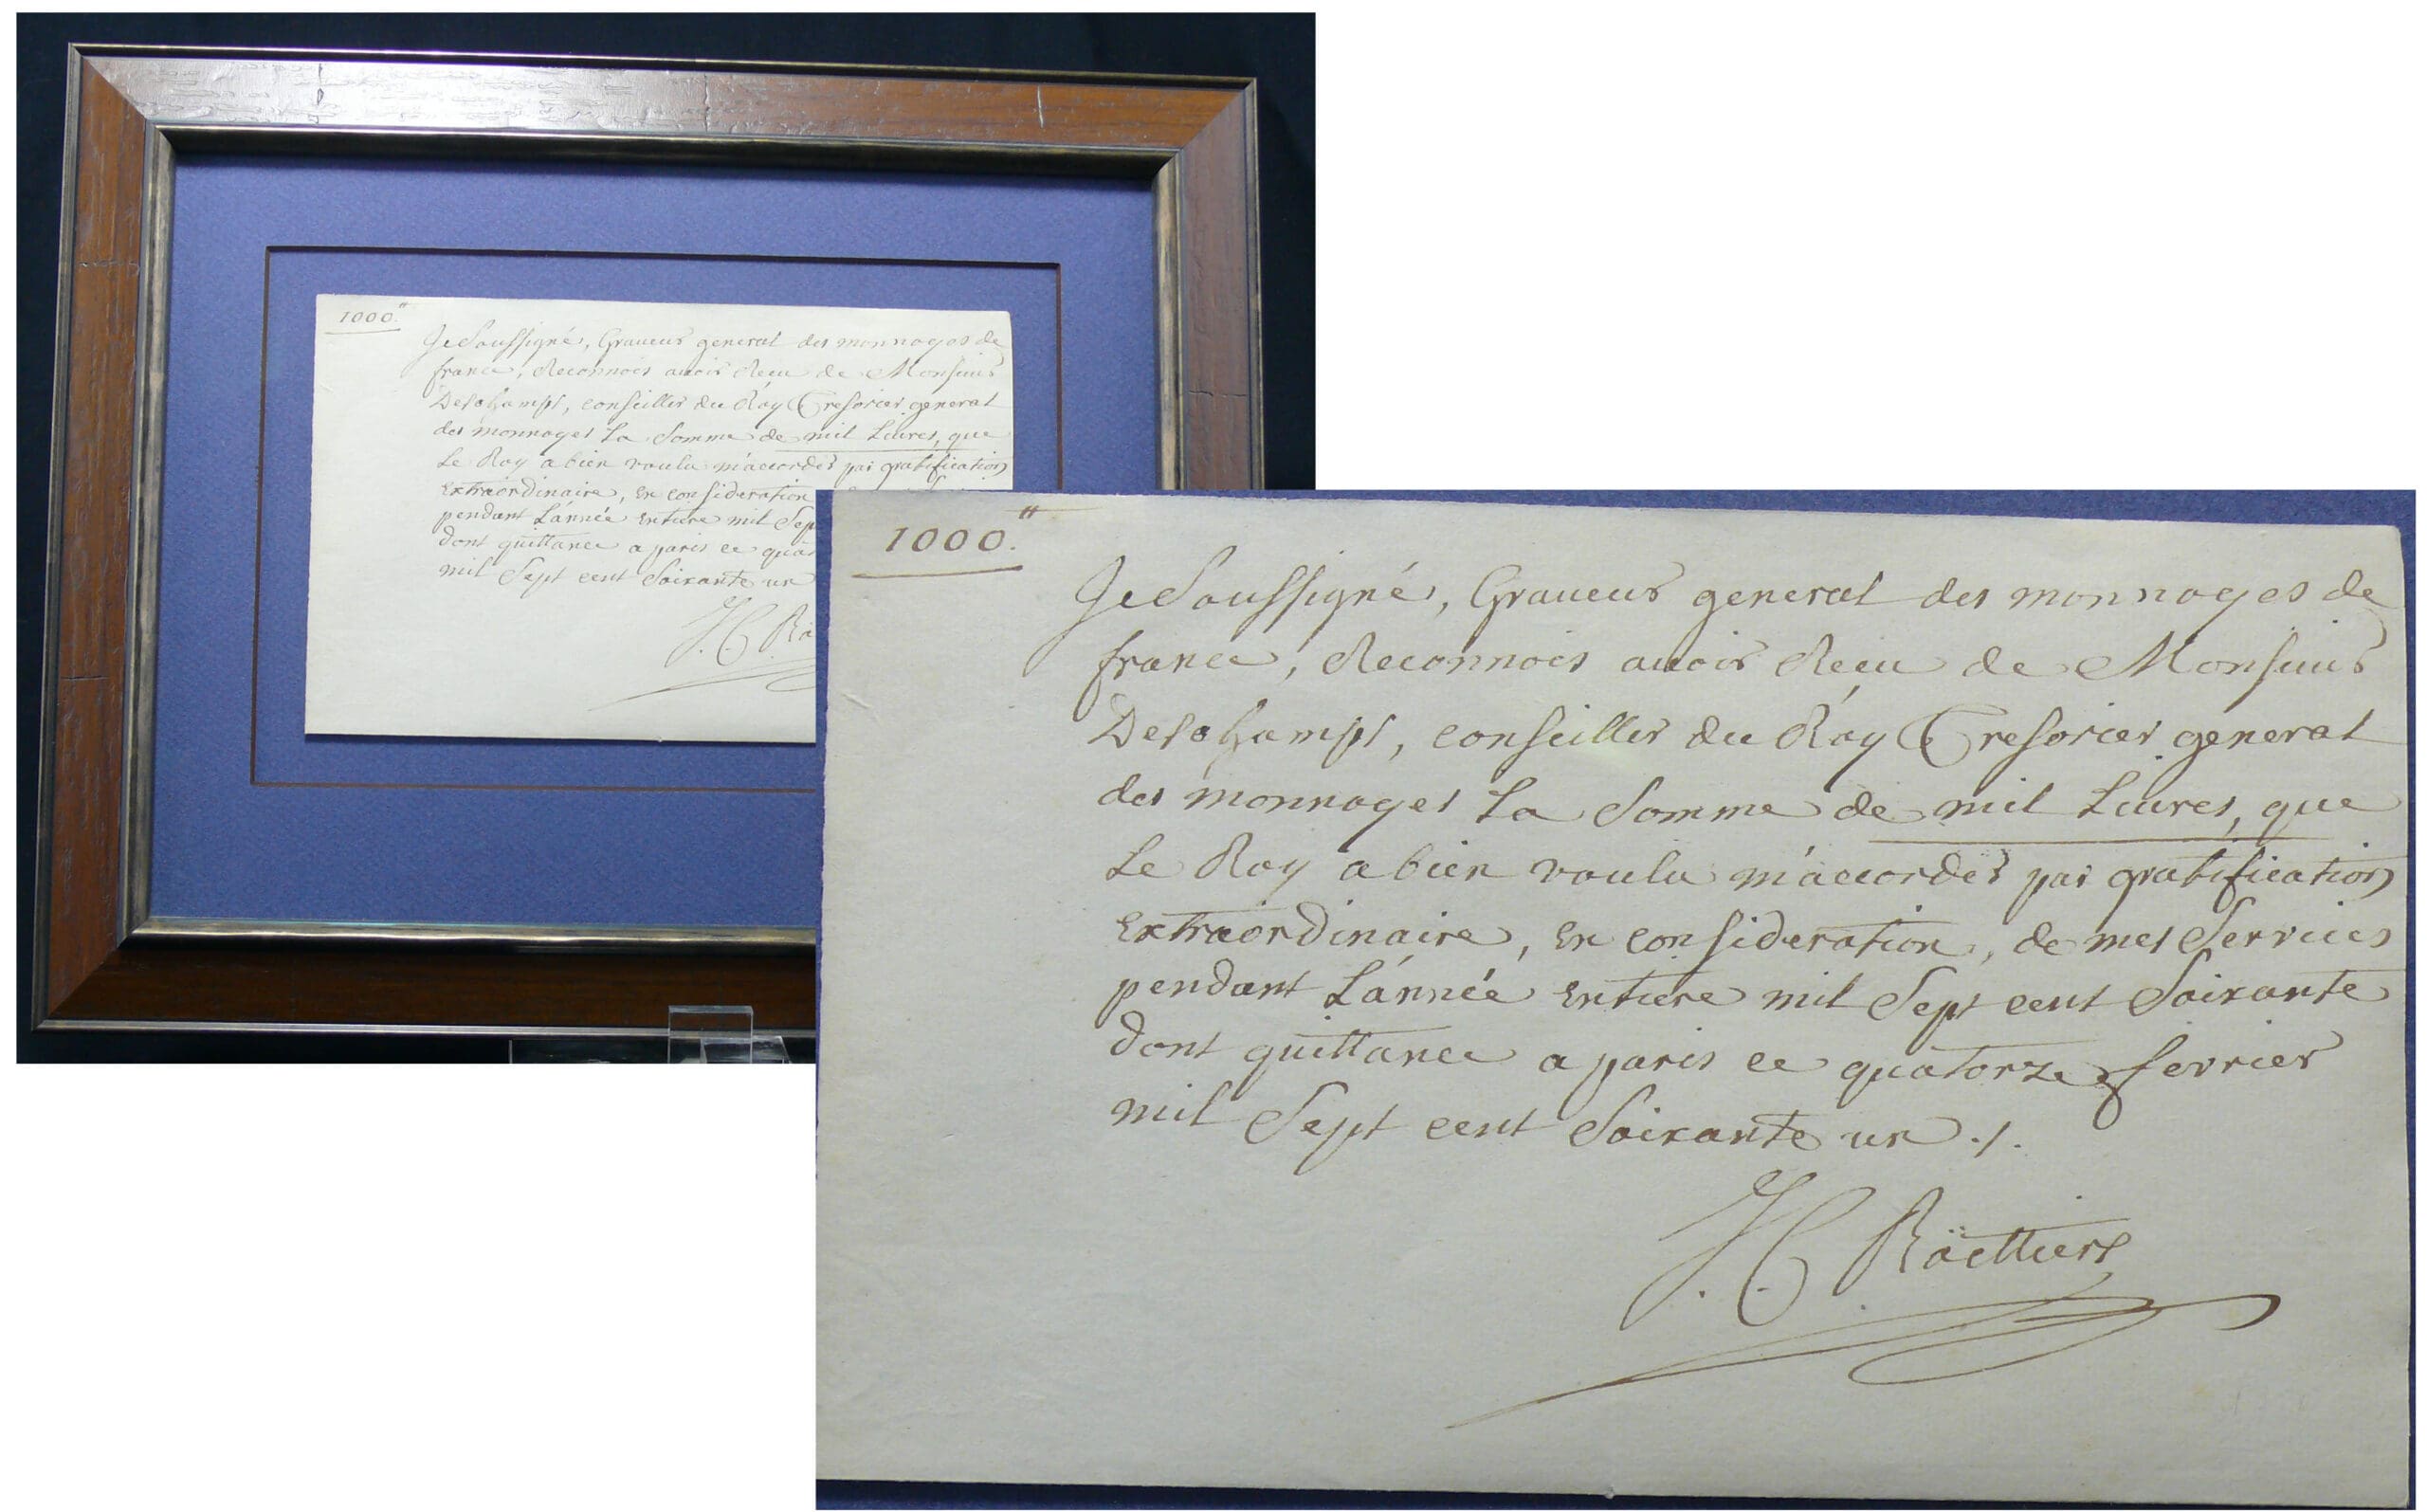 1000.tt
Je Soussigné, Graveur general des monnoyes de
france, Reconnois auoir Receu de Monsieur
Deschamps, conseiller du Roy Tresorier general
des monnoyes La Somme de mil Liures, que
Le Roy a bien voulu m'accorder par gratification
Extraordinaire, En consideration, de mes Services
pendant L'année Entiere mil Sept cent Soixante
dont quittance a paris ce quatorze fevrier
mil Sept cent Soixante un ./.
J.C. Röettiers
1000.tt
Je Soussigné, Graveur general des monnoyes de
france, Reconnois auoir Receu de Monsieur
Deschamps, conseiller du Roy Tresorier general
des monnoyes La Somme de mil Liures, que
Le Roy a bien voulu m'accorder par gratification
Extraordinaire, En consideration
pendant L'année Entiere mil Sep
dont quittance a paris ce qua
mil Sept cent Soixante un
J.C. Rö